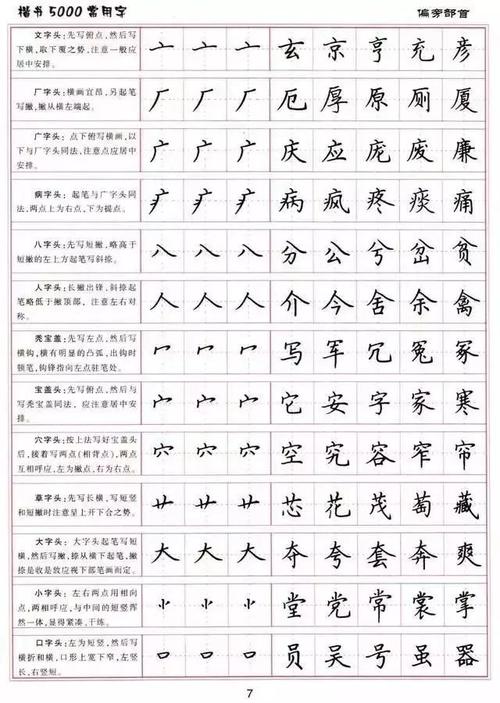 楷书5000常用字
偏旁部首
文字头:先写俯点,然后写
下横,取下覆之势,注意一般应
居中安排。
亠 亠 亠 玄 京 亨 充 彦
厂字头:横画宜昂,另起笔
写撇,撇从横左端起。
厂 厂 厂 厄 厚 原 厕 厦
广字头:点下俯写横画,以
下与厂字头同法,注意点应居中
安排。
广 广 广 庆 应 庞 废 廉
病字头:起笔与广字头同
法,两点上为右点,下为提点。
疒 疒 疒 病 疯 疼 痰 痛
八字头:先写短撇,略高于
短撇的左上方起笔写斜捺。
八 八 八 分 公 兮 岔 贫
人字头:长撇出锋,斜捺起
笔略低于撇顶部,注意左右对
称。
人 人 人 介 今 舍 余 禽
秃宝盖:先写左点,然后写
横钩,横有明显的凸弧,出钩时
顿笔,钩锋指向左点驻笔处。
冖 冖 冖 写 军 冗 冤 冢
宝盖头:先写俯点,然后与
写秃宝盖同法,应注意居中安
排。
宀 宀 宀 它 安 字 家 寒
穴字头:按上法写好宝盖头
后,接着写两点(相背点),两点
互相呼应,左为撇点,右为右点。
穴 穴 穴 空 究 容 窄 帘
草字头:先写长横,写短竖
和短撇时注意呈上开下合之势。
艹 艹 艹 芯 花 茂 萄 藏
大字头:大字头起笔写短
横,然后写撇,捺从横下起笔,撇
捺是收是放应视下部笔画而定。
大 大 大 夺 夸 套 奔 爽
小字头:左右两点用相向
点,两相呼应,与中间的短竖浑
然一体,显得紧凑,干练。
⺌ ⺌ ⺌ 堂 党 常 裳 掌
口字头:左为短竖,然后写
横折和横,口形上宽下窄,左竖
长,右竖短。
口 口 口 员 吴 号 虽 器
7